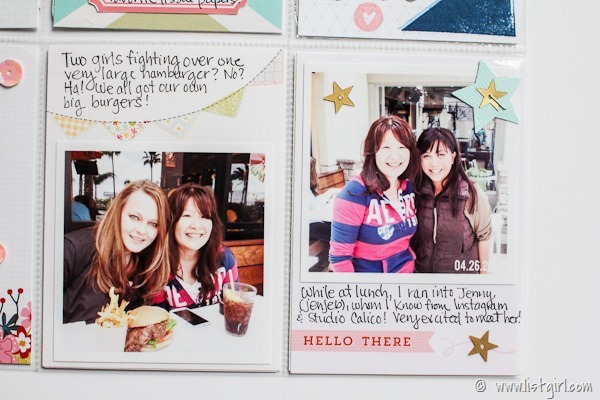 favorite tissue papers
Two girls fighting over one
very large hamburger? No?
Ha! We all got our own
big burgers!
04.26.2
While at lunch, I ran into Jenny
(Jenjeb), whom I know from Instagram
& Studio Calico! Very excited to meet her!
HELLO THERE
© www.listgirl.com